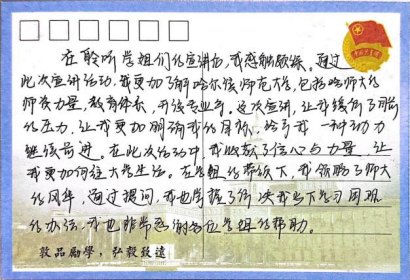 在聆听学姐们的宣讲后，我感触颇深。通过
此次宣讲活动，我更加了解哈尔滨师范大学，包括哈师大的
师资力量，教育体系，开设专业等。这次宣讲，让我缓解了目前
的压力，让我更加明确我的目标，给予我一种动力
继续前进。在此次活动中，我收获了信心与力量，让
我更加向往大学生活。在学姐的带领下，我领略了师大
的风华，通过提问，我也掌握了解决我当下学习困难
的办法，我也非常感谢各位学姐的帮助。
敦品励學，弘毅致遠